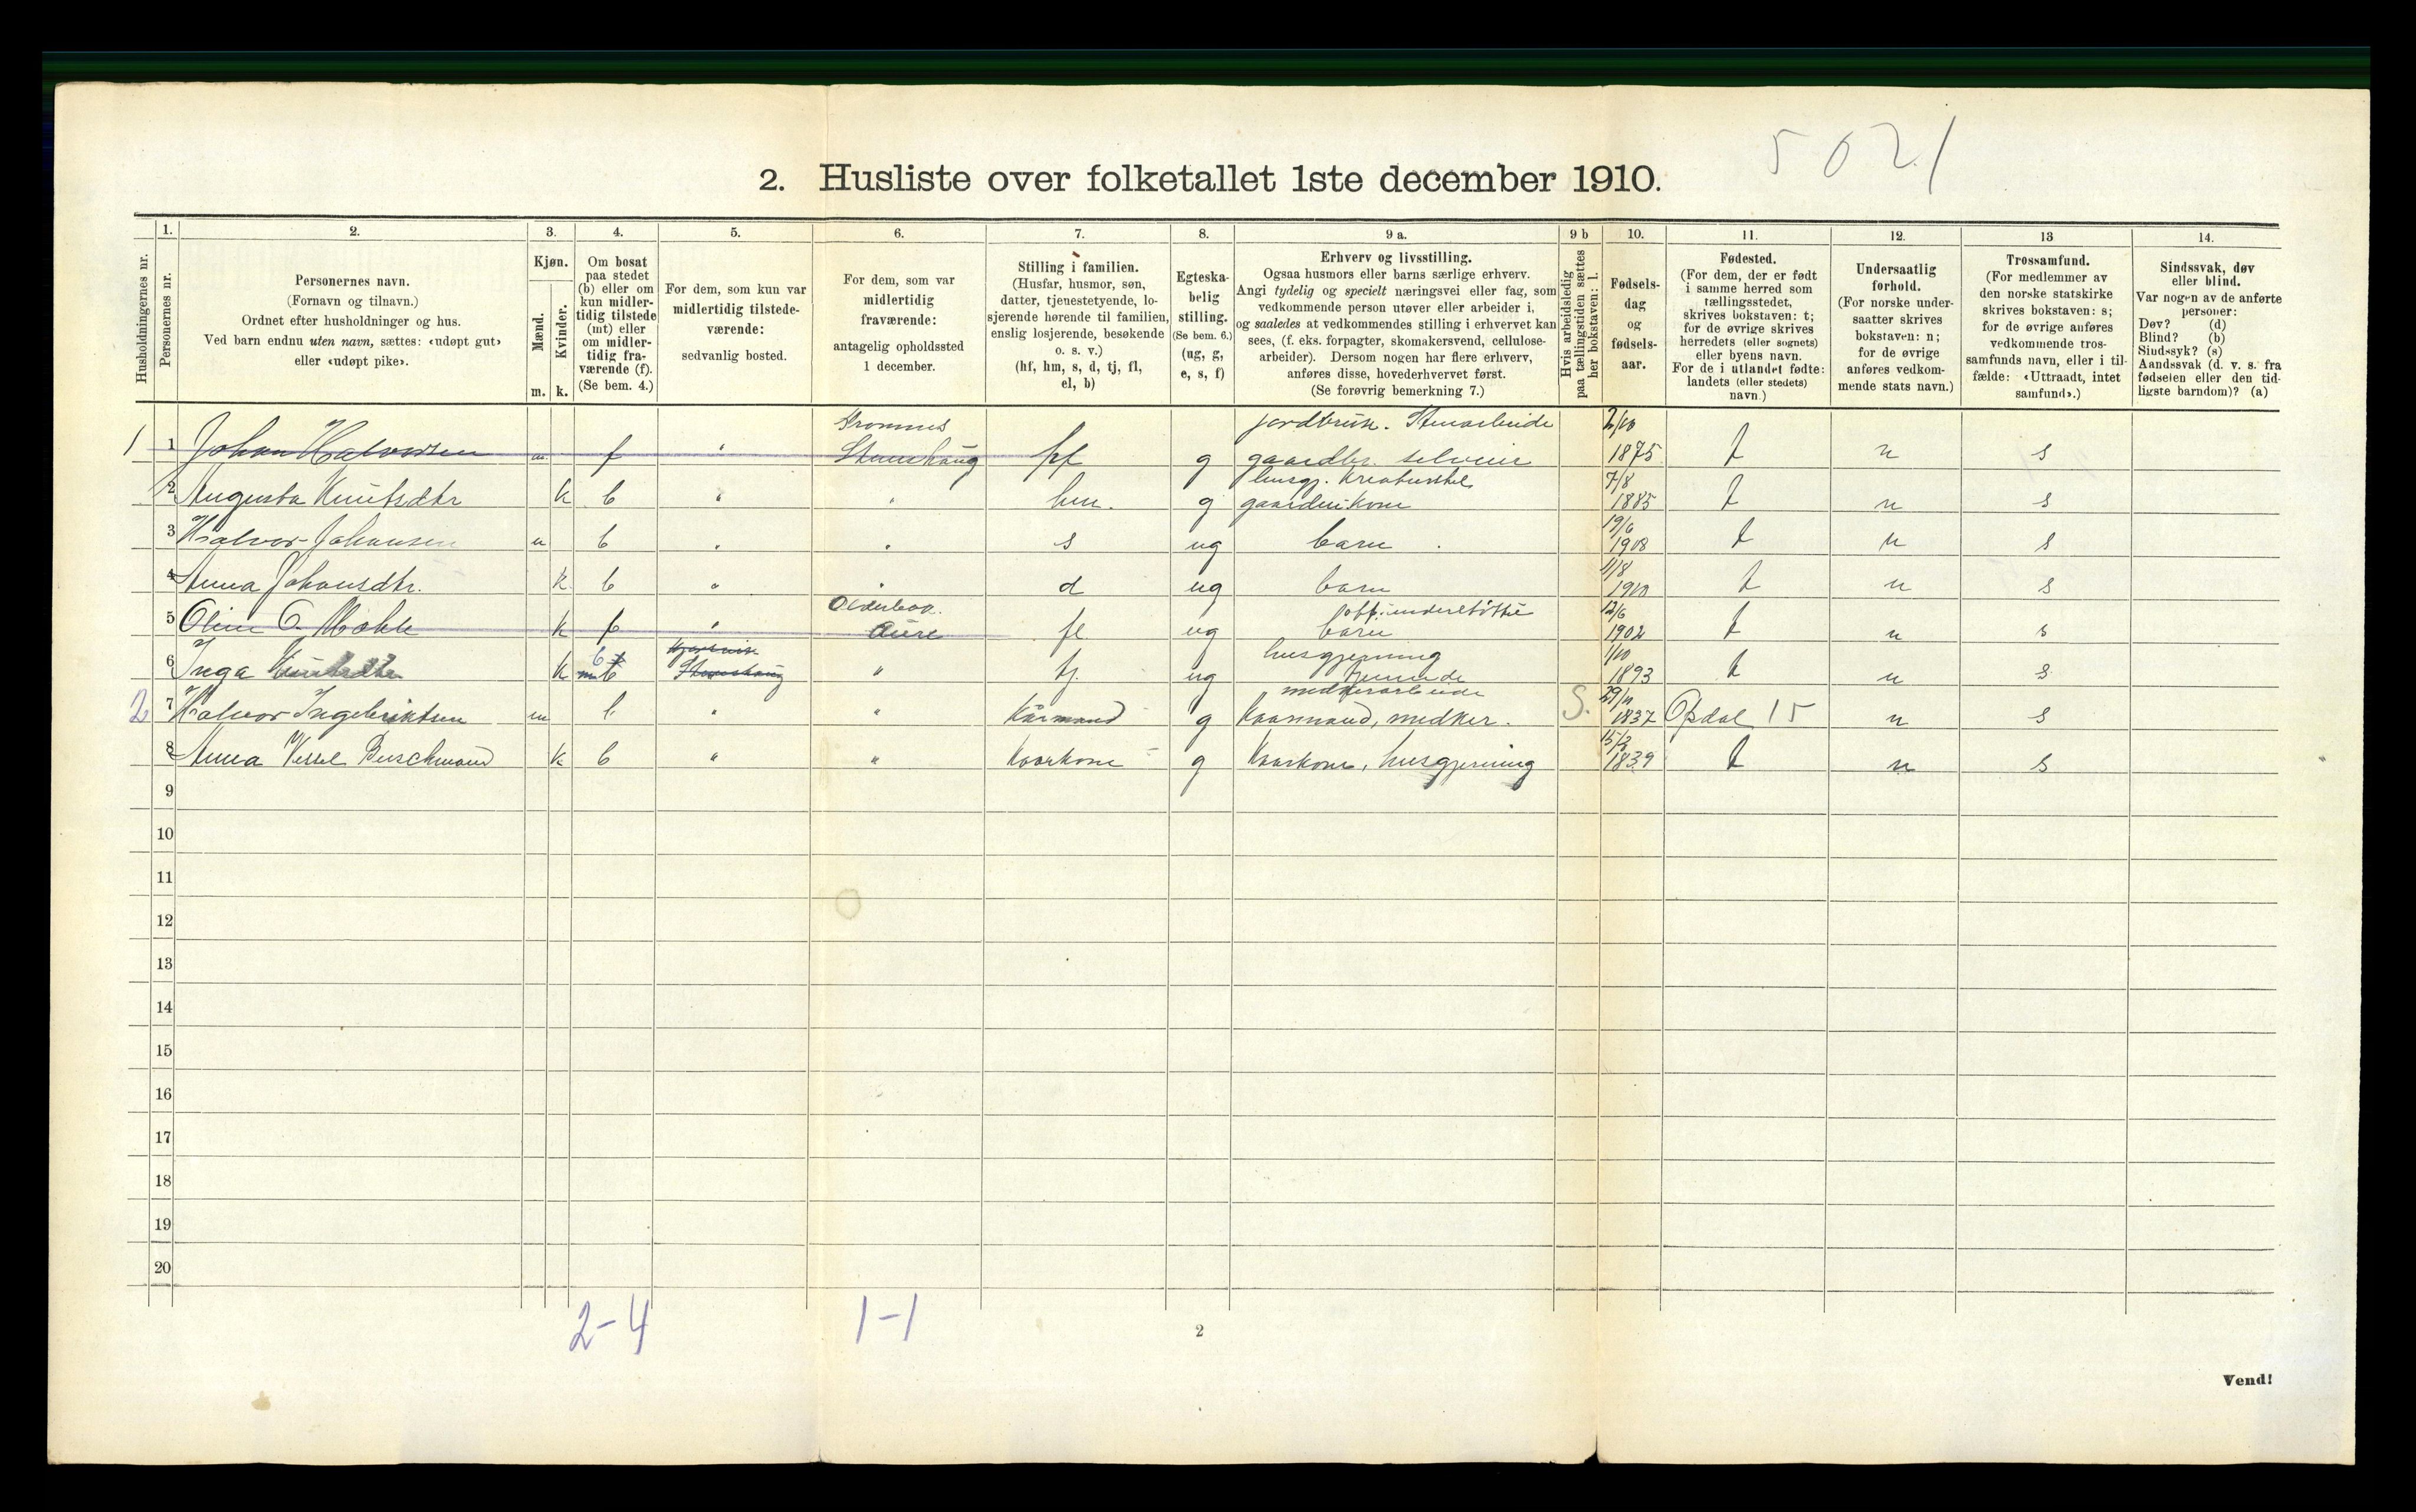 5021
2. Husliste over folketallet 1ste december 1910.
Husholdningernes nr.
1.
Personernes nr.
2.
Personernes navn.
(Fornavn og tilnavn.)
Ordnet efter husholdninger og hus.
Ved barn endnu uten navn, sættes: «udøpt gut»
eller «udøpt pike».
3.
Kjøn.
Mænd.
m.
Kvinder.
k.
4.
Om bosat
paa stedet
(b) eller om
kun midler-
tidig tilstede
(mt) eller
om midler-
tidig fra-
værende (f).
(Se bem. 4.)
5.
For dem, som kun var
midlertidig tilstede-
værende:
sedvanlig bosted.
6.
For dem, som var
midlertidig
fraværende:
antagelig opholdssted
1 december.
7.
Stilling i familien.
(Husfar, husmor, søn,
datter, tjenestetyende, lo-
sjerende hørende til familien,
enslig losjerende, besøkende
o. s. v.)
(hf, hm, s, d, tj, fl,
el, b)
8.
Egteska-
belig
stilling.
(Se bem. 6.)
(ug, g,
e, s, f)
9 a.
Erhverv og livsstilling.
Ogsaa husmors eller barns særlige erhverv.
Angi tydelig og specielt næringsvei eller fag, som
vedkommende person utøver eller arbeider i,
og saaledes at vedkommendes stilling i erhvervet kan
sees, (f. eks. forpagter, skomakersvend, cellulose-
arbeider). Dersom nogen har flere erhverv,
anføres disse, hovederhvervet først.
(Se forøvrig bemerkning 7.)
9 b
Hvis arbeidsledig
paa tællingstiden sættes
her bokstaven: l.
10.
Fødsels-
dag
og
fødsels-
aar.
11.
Fødested.
(For dem, der er født
i samme herred som
tællingsstedet,
skrives bokstaven: t;
for de øvrige skrives
herredets (eller sognets)
eller byens navn.
For de i utlandet fødte:
landets (eller stedets)
navn.)
12.
Undersaatlig
forhold.
(For norske under-
saatter skrives
bokstaven: n;
for de øvrige
anføres vedkom-
mende stats navn.)
13
Trossamfund.
(For medlemmer av
den norske statskirke
skrives bokstaven: s;
for de øvrige anføres
vedkommende tros-
samfunds navn, eller i til-
fælde: «Uttraadt, intet
samfund».)
14.
Sindssvak, døv
eller blind.
Var nogen av de anførte
personer:
Døv? (d)
Blind? (b)
Sindssyk? (s)
Aandssvak (d. v. s. fra
fødselen eller den tid-
ligste barndom)? (a)
jordbruk. Stenarbeide
1 1 Johan Halvorsen m f " hf g gaardbr. selveier 2/10 1875 t n s
husgj. Kreaturstel
2 Augusta Knutsdtr k b " " hm. g gaardmkone 7/8 1885 t n s
3 Halvor Johansen m b " " s ug barn 19/6 1908 t n s
4 Anna Johansdtr. k b " " d ug barn 11/8 1910 t n s
off. understøttet
5 Oline O. k f " Aure fl ug barn 12/6 1902 t n s
husgjerning
6 Inga k mt b " tj ug tjenende 1/10 1893 t n s
2 7 Halvor Ingebriktsen m b " " Kårmand g Kaarmand, medker. S. 29/11 1837 Opdal 15 n s
8 Anna Vessel Buschmand k b " " Kaarkone g Kaarkone, husgjerning 15/3 1839 t n s
9
10
11
12
13
14
15
16
17
18
19
20
2-4 1-1
2
Vend!